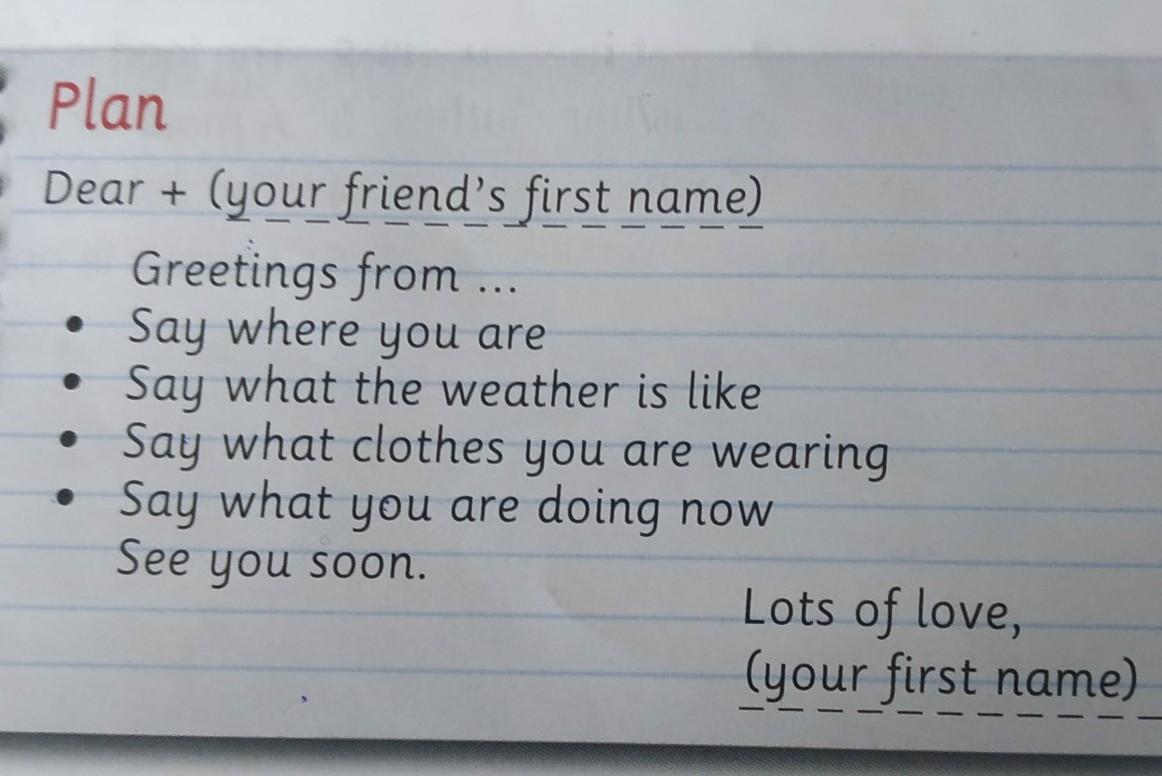 Plan
Dear + (your friend's first name)
Greetings from ...
• Say where you are
• Say what the weather is like
• Say what clothes you are wearing
• Say what you are doing now
See you soon.
Lots of love,
(your first name)